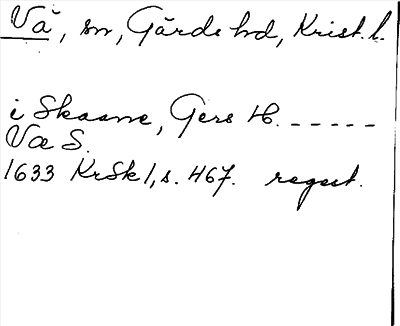 Vä, sn, Gärds hd, Krist. l.
i Skaane, Gers H. -----
Væ S.
1633 KrSk 1, s. 467. regest.